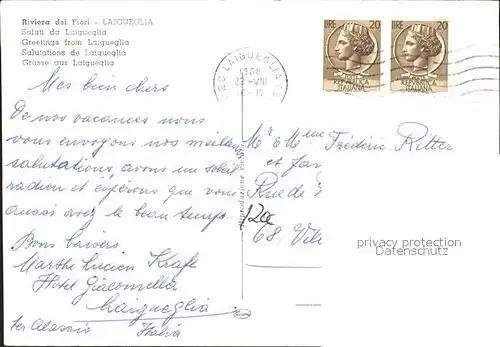 Riviera dei Fiori - LAIGUEGLIA
Saluti da Laigueglia
Greetings from Laigueglia
Salutations de Laigueglia
Grüsse aus Laigueglia
LAIGUEGLIA
1968
22-VIII
LIRE 20
REPUBBLICA
ITALIANA
LIRE 20
REPUBBLICA
ITALIANA
Mes bien chers
De nos vacances nous
vous envoyons nos meilleu
salutations, avons un soleil
radieu et espérons que vous
aussi avez le beau temps.
Bons baisers
Marthe Lucien Krafft
Hotel Giacomella
Laigueglia
per Alassio Italia
Mr & Mme Frédéric Ritter
et
Rue de
68
Riproduzione Vietata
120c
privacy protection
Datenschutz